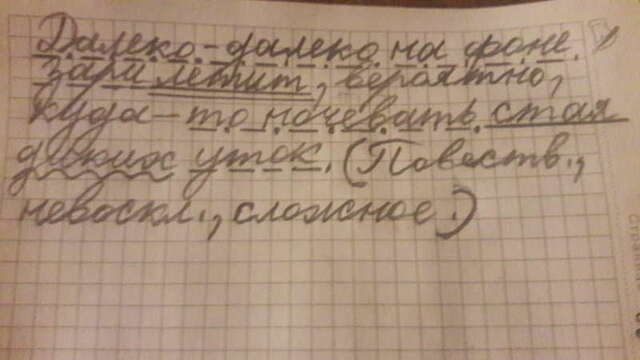 Далеко-далеко на фоне
зари летит, вероятно,
куда-то ночевать стая
диких уток. (Повеств.,
невоскл., сложное.)